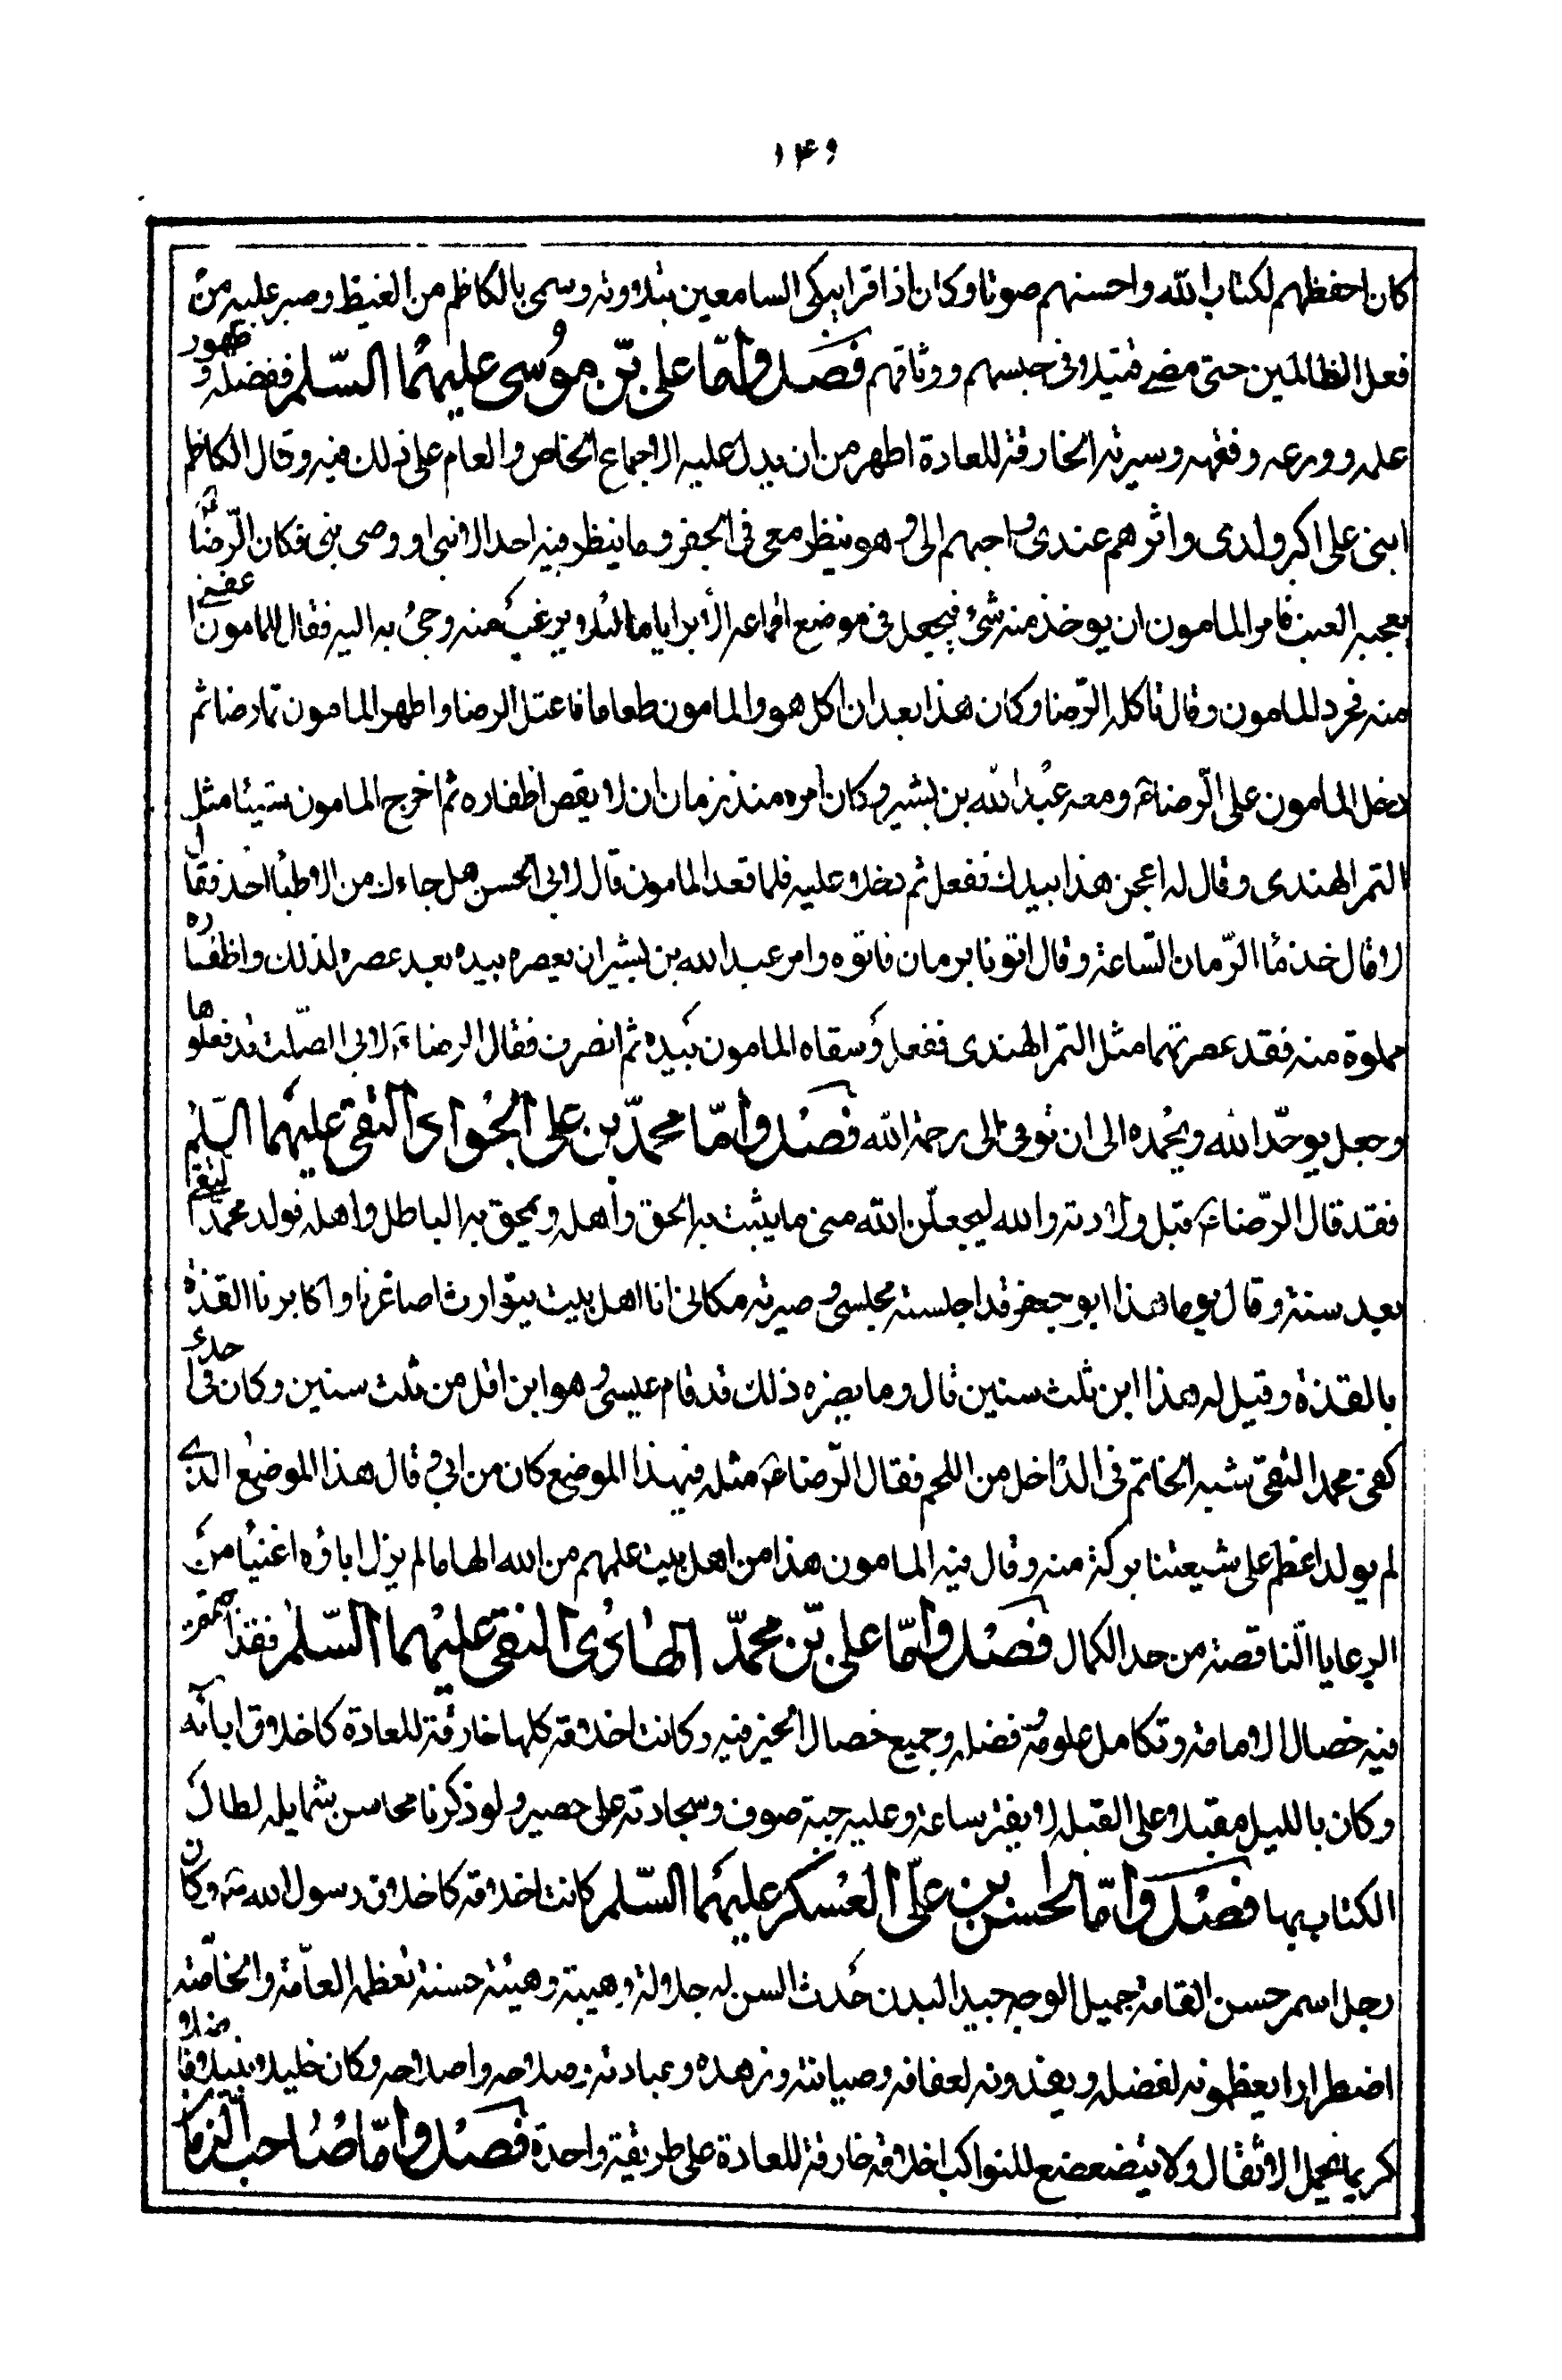 ١٤٩
كان احفظهم لكتاب الله واحسنهم صوتا وكان اذا قرا يبكى السامعين بتلاوته وسمى بالكاظم من الغيظ وصبر عليه من
فعل الظالمين حتى مضى قتيلا فى حبسهم ووثاقهم فصل واما على بن موسى عليهما السلم ففضله و ظهور
علمه وورعه وفقهه وسيرته الخارقة للعادة اظهر من ان يدل عليه الاجماع الخاص والعام على ذلك فيه وقال الكاظم
ابنى على اكبر ولدى واثرهم عندى واحبهم الى وهو ينظر معى فى الجفر وما ينظر فيه احد الا نبى او وصى نبى فكان الرضا
يعجبه العنب فامر المامون ان يوخذ منه شئ فيجعل فى موضع اقماعه الابر اياما وجئ به اليه فقال للمامون اعفنى
منه فحرد المامون وقال فاكله الرضا وكان هذا بعد ان اكل هو والمامون طعاما فاعتل الرضا واظهر المامون تمارضا ثم
دخل المامون على الرضا ع ومعه عبد الله بن بشير وكان امره منذ زمان ان لا يقص اظفاره ثم اخرج المامون شيئا مثل
التمر الهندى وقال له اعجن هذا بيدك ففعل ثم دخلا عليه فلما قعد المامون قال لابى الحسن هل جاءك من الاطبا احد فقال
لا قال خذ ما الرمان الساعة وقال اتونا برمان فاتوه وامر عبد الله بن بشير ان يعصره بيده بعد عصره لذلك واظفاره
مملوة منه فقد عصر تهما مثل التمر الهندى ففعل وسقاه المامون بيده ثم انصرف فقال الرضا ع لابى الصلت قد فعلوها
وجعل يوحد الله ويحمده الى ان توفى الى رحمة الله فصل واما محمد بن على الجواد التقى عليهما السلم
فقد قال الرضا ع قبل ولادته والله ليجعلن الله منى ما يثبت به الحق واهله ويمحق به الباطل واهله فولد محمد التقى
بعد سنة وقال يوما هذا ابو جعفر قد اجلسته مجلسى وصيرته مكانى انا اهل بيت يتوارث اصاغرنا اكابرنا القذة
بالقذة وقيل له هذا ابن ثلث سنين قال وما يضره ذلك قد قام عيسى وهو ابن اقل من ثلث سنين وكان فى احدى
كفى محمد التقى شبه الخاتم فى الداخل من اللحم فقال الرضا ع مثله فى هذا الموضع كان من ابى وقال هذا الموضع الذى
لم يولد اعظم على شيعتنا بركة منه وقال فيه المامون هذا من اهل بيت علمهم من الله الهاما لم يزل اباؤه اغنيا من
الرعايا الناقصة من حد الكمال فصل واما على بن محمد الهادى النقى عليهما السلم فقد اجتمعت
فيه خصال الامامة وتكامل علومه وفضله وجميع خصال الخير فيه وكانت اخلاقه كلها خارقة للعادة كاخلاق ابائه
وكان بالليل مقبلا على القبله لا يفتر ساعة وعليه جبة صوف وسجادته على حصير ولو ذكرنا محاسن شمايله لطال
الكتاب بها فصل واما الحسن بن على العسكر عليهما السلم كانت اخلاقه كاخلاق رسول الله ص وكان
رجل اسمر حسن القامة جميل الوجه جيد البدن حدث السن له جلالة وهيبة وهيئة حسنة تعظمه العامة والخاصة
اضطرارا يعظمونه لفضله ويفدونه لعفافه وصيانته وزهده وعبادته وصلاحه واصلاحه وكان جليلا نبيلا فاضلا
كريما يحمل الاثقال ولا يتضعضع للنوائب اخلاقه خارقة للعادة على طريقة واحدة فصل واما صاحب الزمان